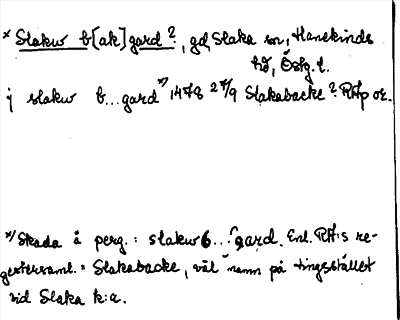 * Slakw b[ak]gard?, gd, Slaka sn, Hanekinds
hd, Östg. l.
j slakw b...gard *) 1478 27/9 Slakabacke? RAp or.
*) Skada å perg.: slakwb...gard. Enl. RA:s re-
gestersaml. = Slakabacke, väl namn på tingsstället
vid Slaka k:a.